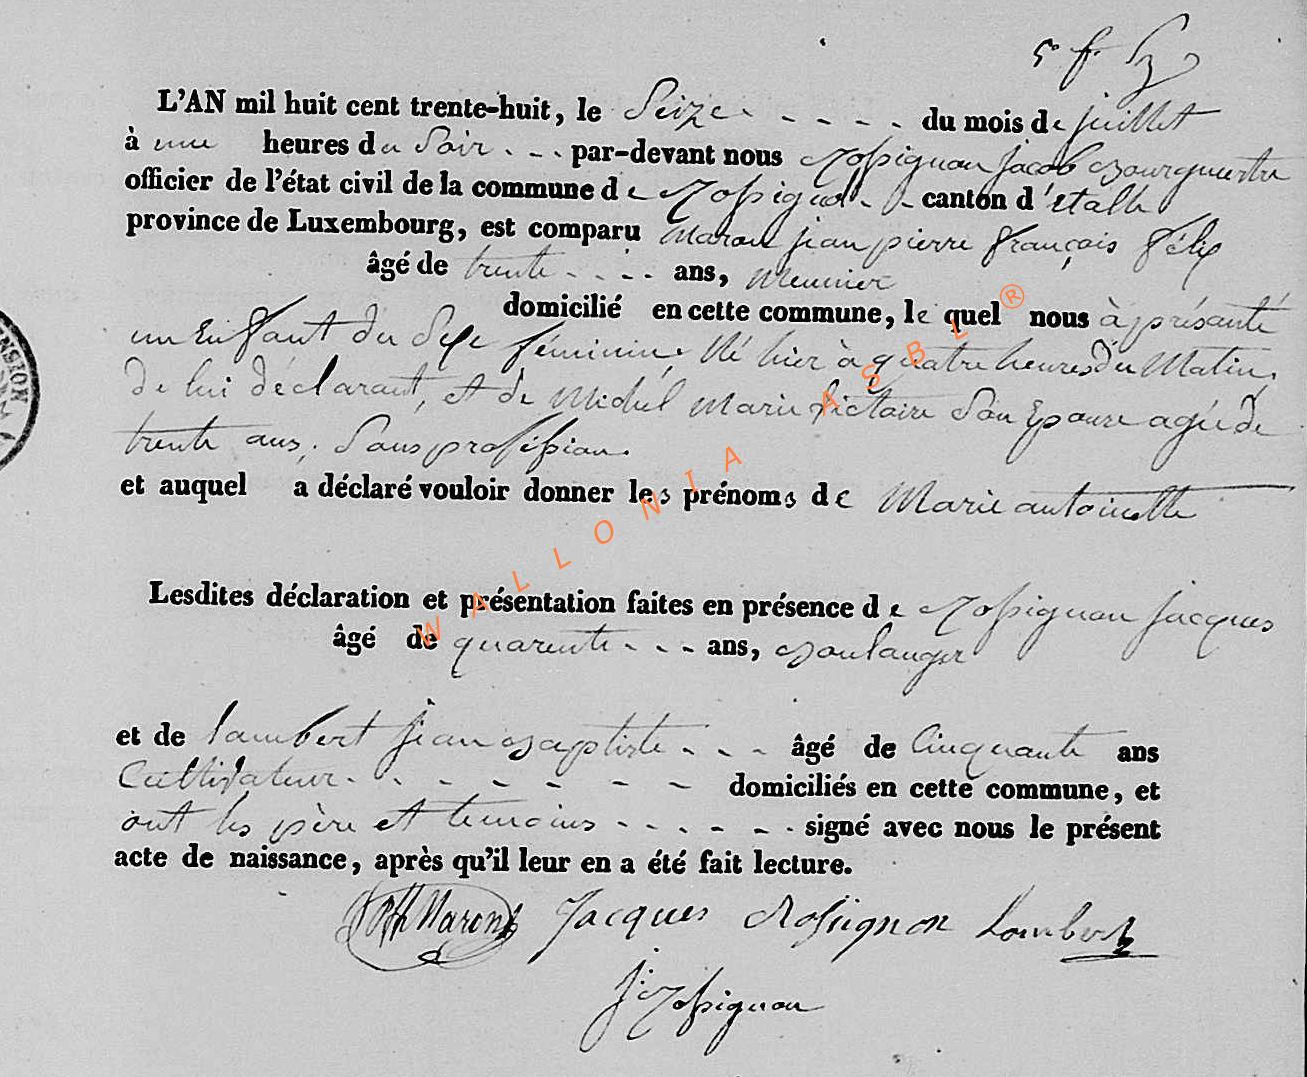 5. f.
L'AN mil huit cent trente-huit, le Seize - - - - du mois de juillet
à une heures du Soir - - - par-devant nous Rossignon jacob Bourguestre
officier de l'état civil de la commune de Rossignol - canton d'étalle
province de Luxembourg, est comparu Maron jean pierre françois félix
âgé de trente - - - - ans, Meunier
domicilié en cette commune, le quel nous à présanté
un Enfant du Sexe féminin, Né hier à quatre heures du Matin,
de lui déclarant, et de Michel Marie victoire Son Epouse agée de
trente ans, Sans profession.
et auquel a déclaré vouloir donner les prénoms de Marie antoinette
Lesdites déclaration et présentation faites en présence de Rossignon jacques
âgé de quarente - - - ans, Boulanger
et de lambert jean Baptiste - - - âgé de Cinquante ans
Cultivateur - - - - - - - domiciliés en cette commune, et
ont les père et temoins - - - - - - signé avec nous le présent
acte de naissance, après qu'il leur en a été fait lecture.
Maron Jacques Rossignon Lambert
j. Rossignon
WALLONIA ASBL ®
NSION